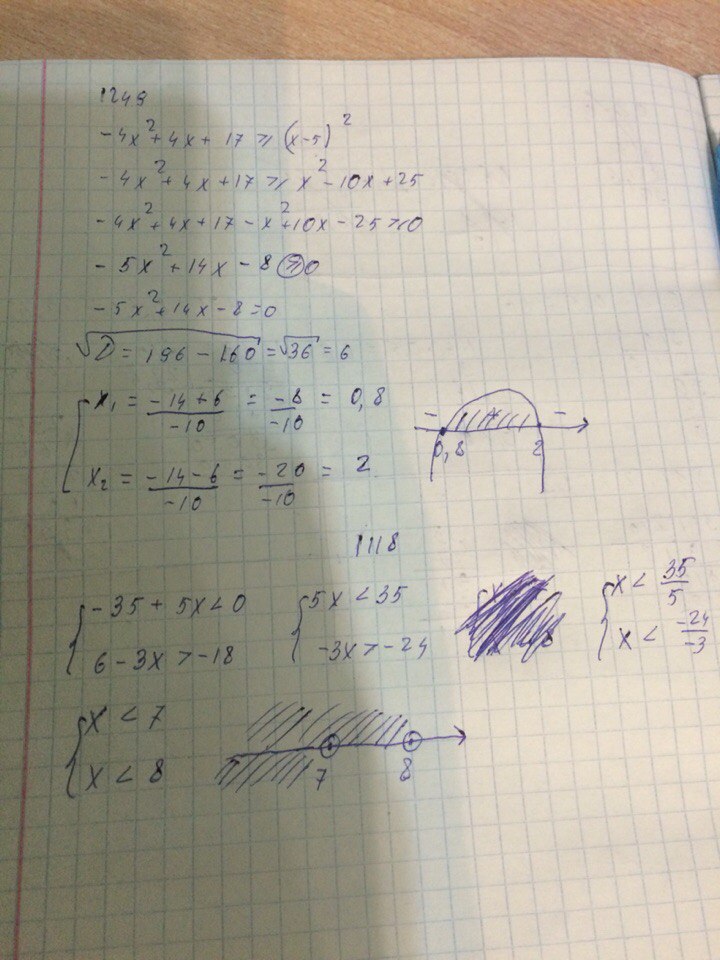 1249
-4x²+4x+17 ⩾ (x-5)²
-4x²+4x+17 ⩾ x²-10x+25
-4x²+4x+17-x²+10x-25 ⩾ 0
-5x²+14x-8 ⩾ 0
-5x²+14x-8=0
√D = 196-160 = √36 = 6
[ x₁ = (-14+6)/(-10) = (-8)/(-10) = 0,8
x₂ = (-14-6)/(-10) = (-20)/(-10) = 2
- + -
0,8 2
1118
{ -35+5x<0 { 5x<35 { x < 35/5
6-3x>-18 -3x>-24 x < -24/-3
{ x < 7
x < 8
7 8